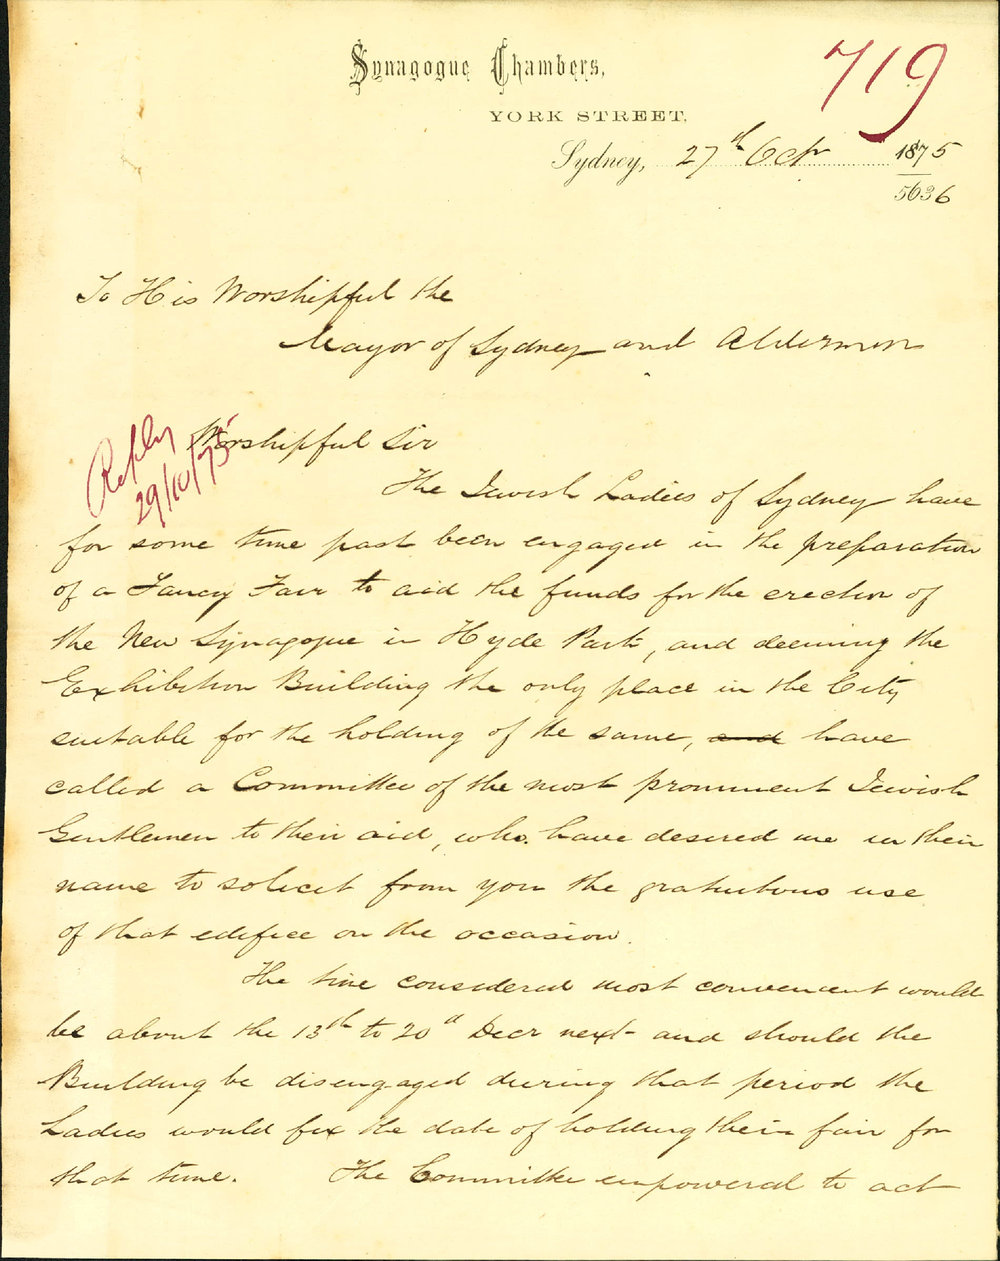 719
Synagogue Chambers,
YORK STREET,
Sydney, 27th Octr 1875
5636
To His Worshipful the
Mayor of Sydney and Aldermen
Reply
29/10/75
Worshipful Sir
The Jewish Ladies of Sydney have
for some time past been engaged in the preparation
of a Fancy Fair to aid the funds for the erection of
the New Synagogue in Hyde Park, and deeming the
Exhibition Building the only place in the City
suitable for the holding of the same, and have
called a Committee of the most prominent Jewish
Gentlemen to their aid, who have desired me in their
name to solicit from you the gratuitous use
of that edifice on the occasion.
The time considered most convenient would
be about the 13th to 20th Decr next and should the
Building be disengaged during that period the
Ladies would fix the date of holding their fair for
that time. The Committee empowered to act